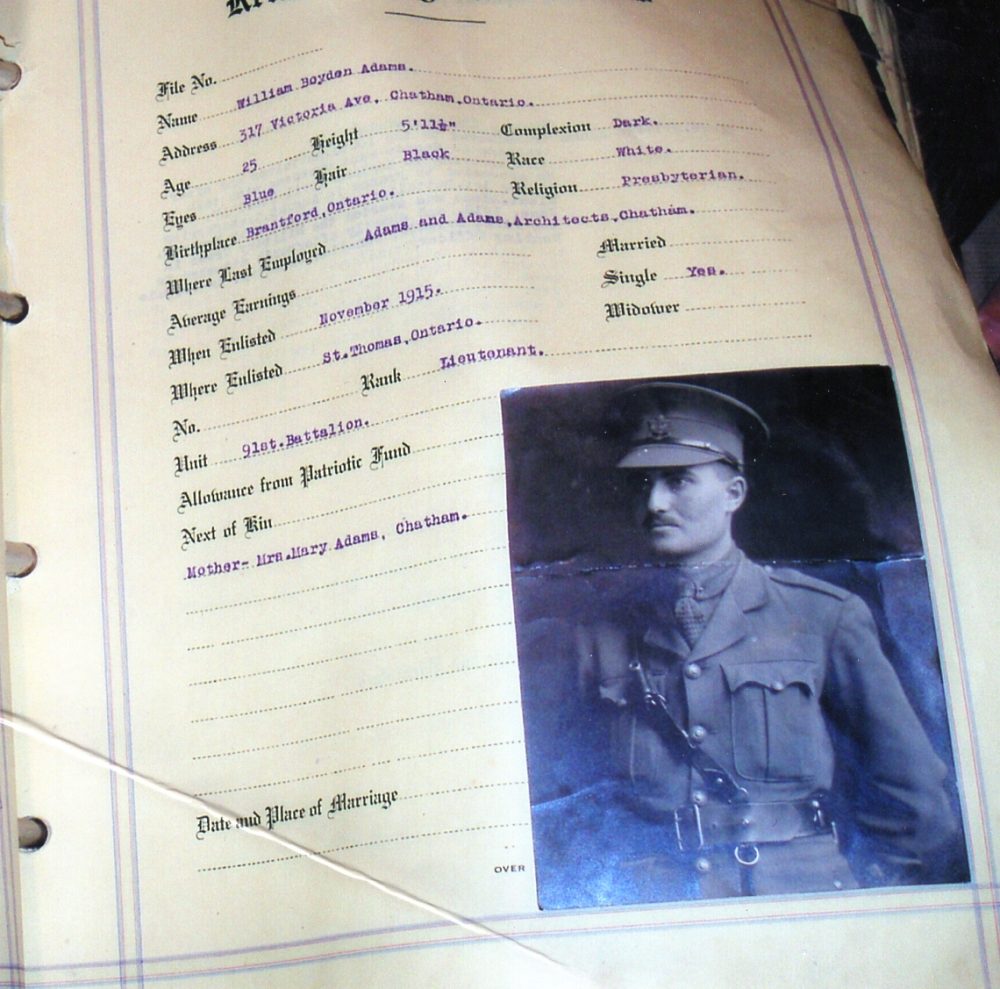 File No.
Name William Boyden Adams.
Address 317 Victoria Ave, Chatham,Ontario.
Age 25 Height 5'11½" Complexion Dark.
Eyes Blue Hair Black Race White.
Birthplace Brantford,Ontario. Religion Presbyterian.
Where Last Employed Adams and Adams,Architects,Chatham.
Average Earnings Married
When Enlisted November 1915. Single Yes.
Where Enlisted St.Thomas,Ontario. Widower
No. Rank Lieutenant.
Unit 91st.Battalion.
Allowance from Patriotic Fund
Next of Kin
Mother- Mrs.Mary Adams, Chatham.
Date and Place of Marriage
OVER